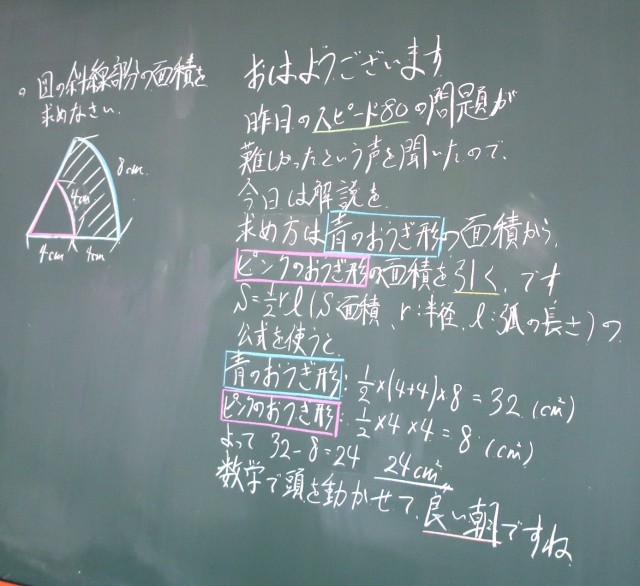 。図の斜線部分の面積を
求めなさい.
8cm.
4cm
4cm
4cm
おはようございます
昨日のスピード80の問題が
難しかったという声を聞いたので、
今日は解説を.
求め方は青のおうぎ形の面積から、
ピンクのおうぎ形の面積を引く、です
S=½rl (S:面積、r:半径、l:弧の長さ)の
公式を使うと、
青のおうぎ形:½×(4+4)×8=32 (cm²)
ピンクのおうぎ形:½×4×4=8 (cm²)
よって 32-8=24 24cm²
数学で頭を動かせて、良い朝ですね